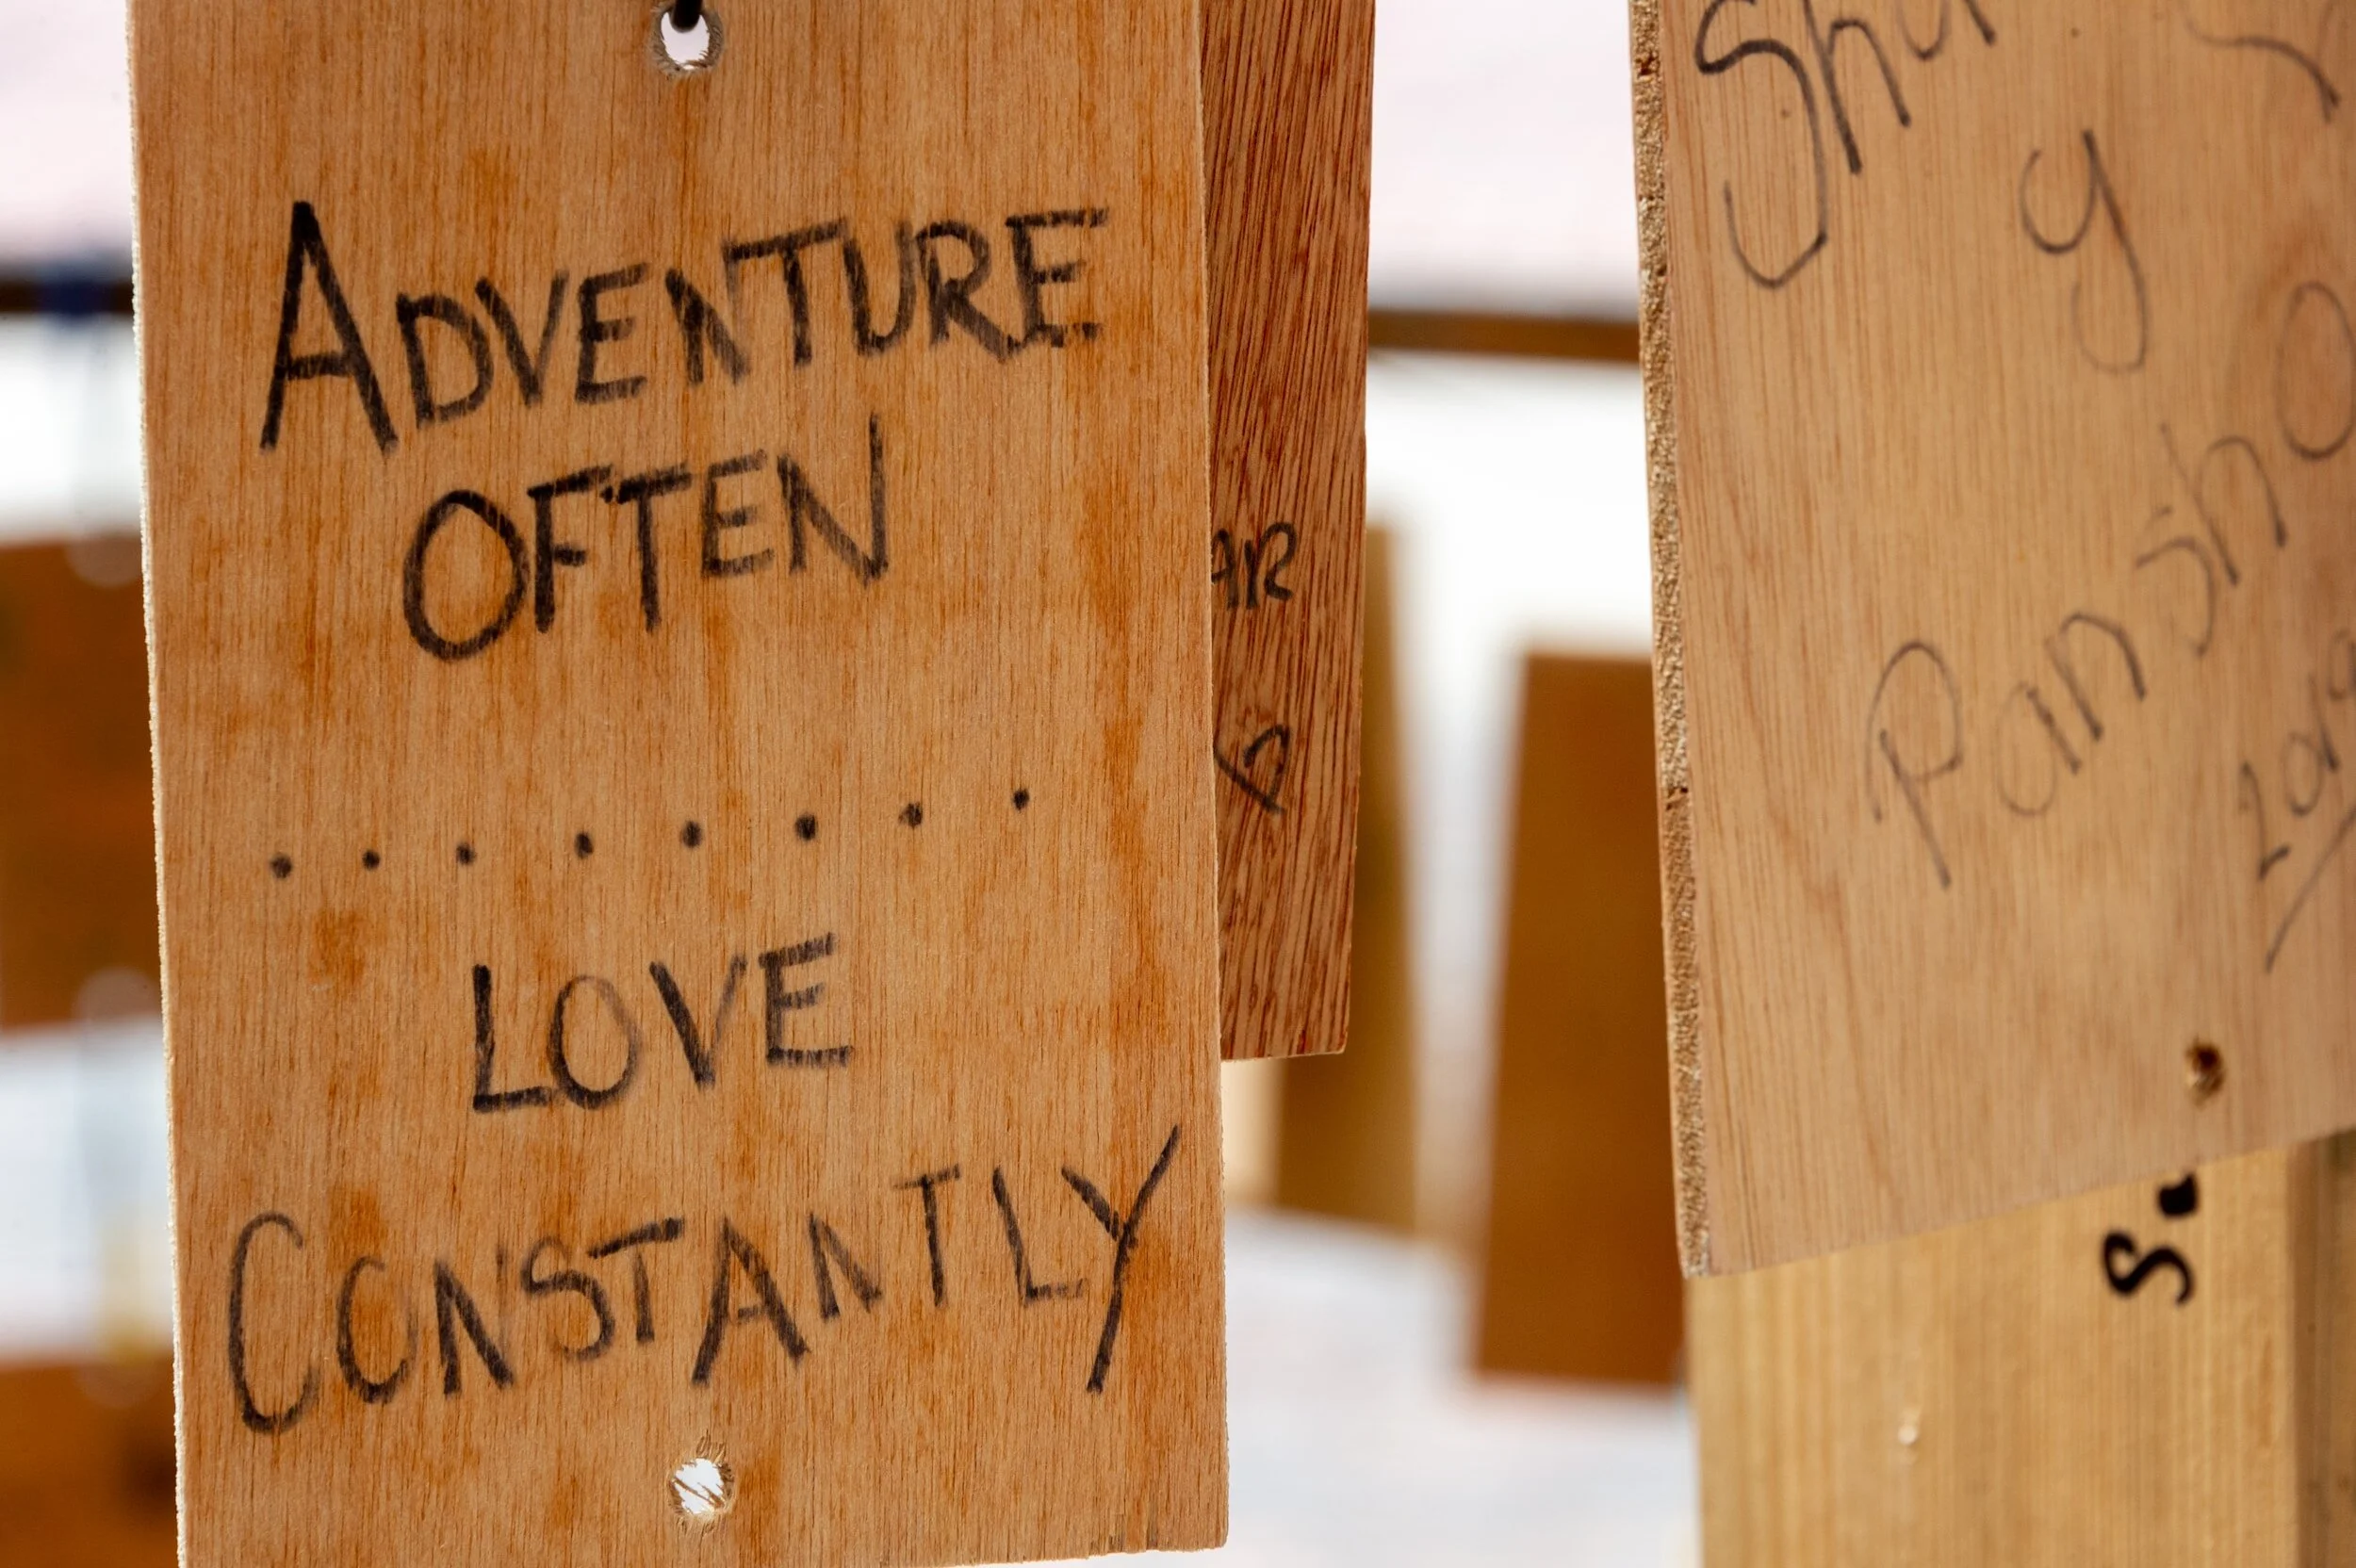 ADVENTURE
OFTEN
........
LOVE
CONSTANTLY
AR
y
Pansho
2019